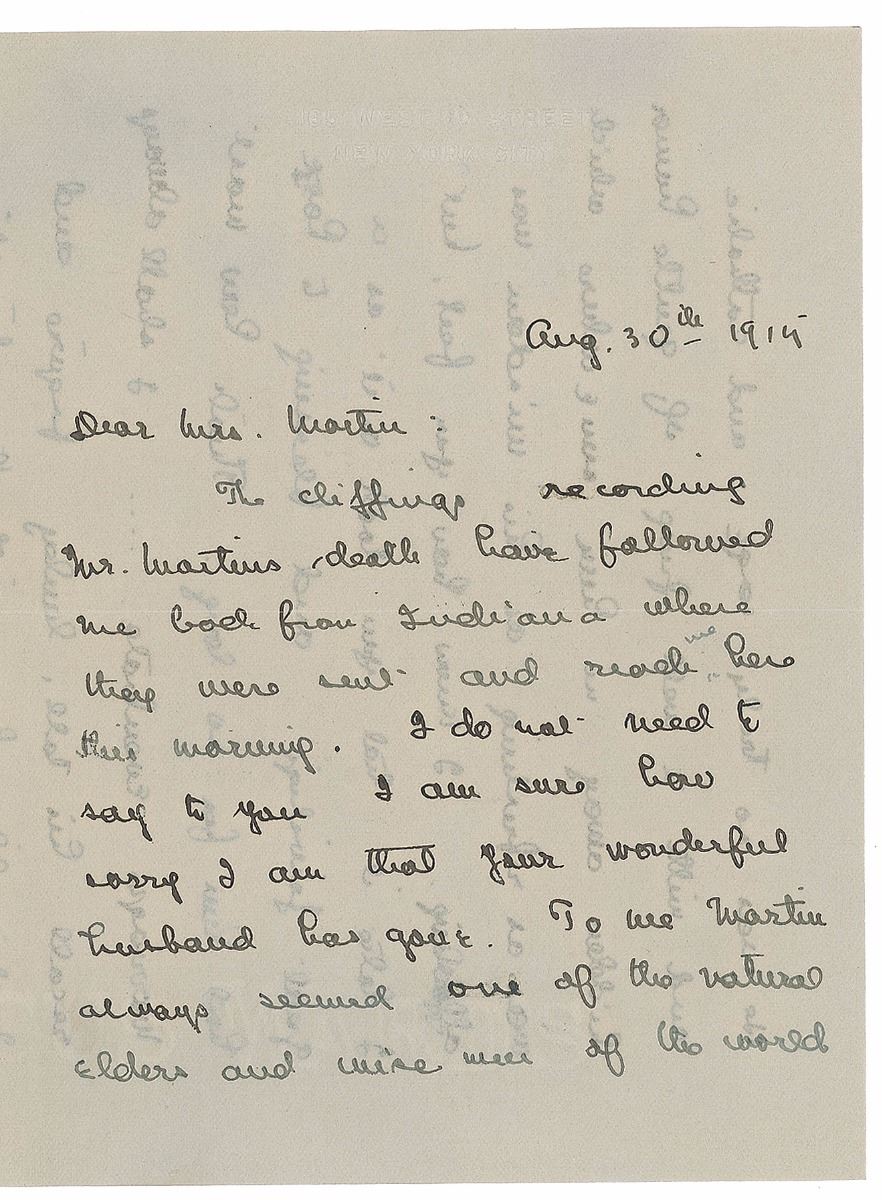 WEST STREET
NEW YORK CITY
Aug. 30th 1915
Dear Mrs. Martin:
The clippings recording
Mr. Martins death have followed
me back from Indiana where
they were sent and reach me here
this morning. I do not need to
say to you I am sure how
sorry I am that your wonderful
husband has gone. To me Martin
always seemed one of the natural
elders and wise men of the world